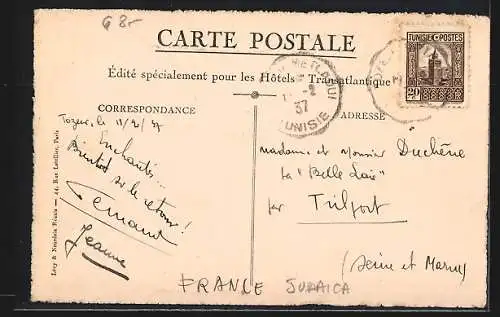 G 8r
CARTE POSTALE
TUNISIE POSTES
20
Édité spécialement pour les Hôtels Transatlantique
CORRESPONDANCE
ADRESSE
37
TUNISIE
Tozeur, le 11/2/37
Enchantés...
Bientôt sur le retour!
Fernand
Jeanne
Madame et Monsieur Duchêne
La "Belle Loie"
par Trilport
(Seine et Marne)
Lévy & Neurdein Réunis — 44, Rue Letellier, Paris
FRANCE JURAICA